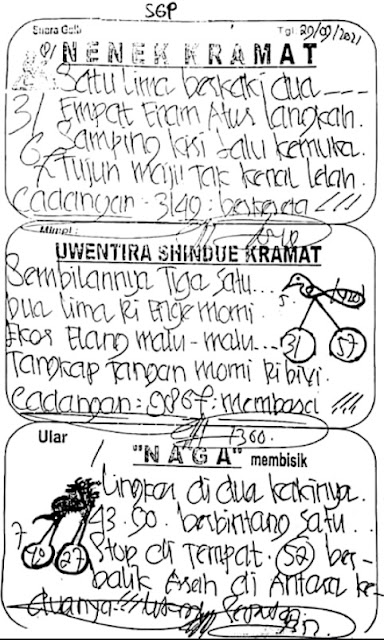 SGP
Suara Gaib
Tgl 20/09/2021
NENEK KRAMAT
Satu lima berkaki dua ---
31 Empat Enam Atus langkah.
6 Samping kiri lalu kemuka.
7 Tujuh maju Tak kenal lelah.
Cadangan - 3140 : berkereta
Mimpi :
UWENTIRA SHINDUE KRAMAT
Sembilannya Tiga Satu...
Dua lima Ri Enge momi.
Ekor Elang malu - malu...
31 57
Tangkap Tangan momi Ri bivi.
Cadangan = 9865 : membasci
1360.
Ular
"NAGA" membisik
Lingkar di dua kakinya.
7 43.90. berbintang Satu..
27 Stop di Tempat. 52 ber-
balik Arah di Antara ke-
duanya